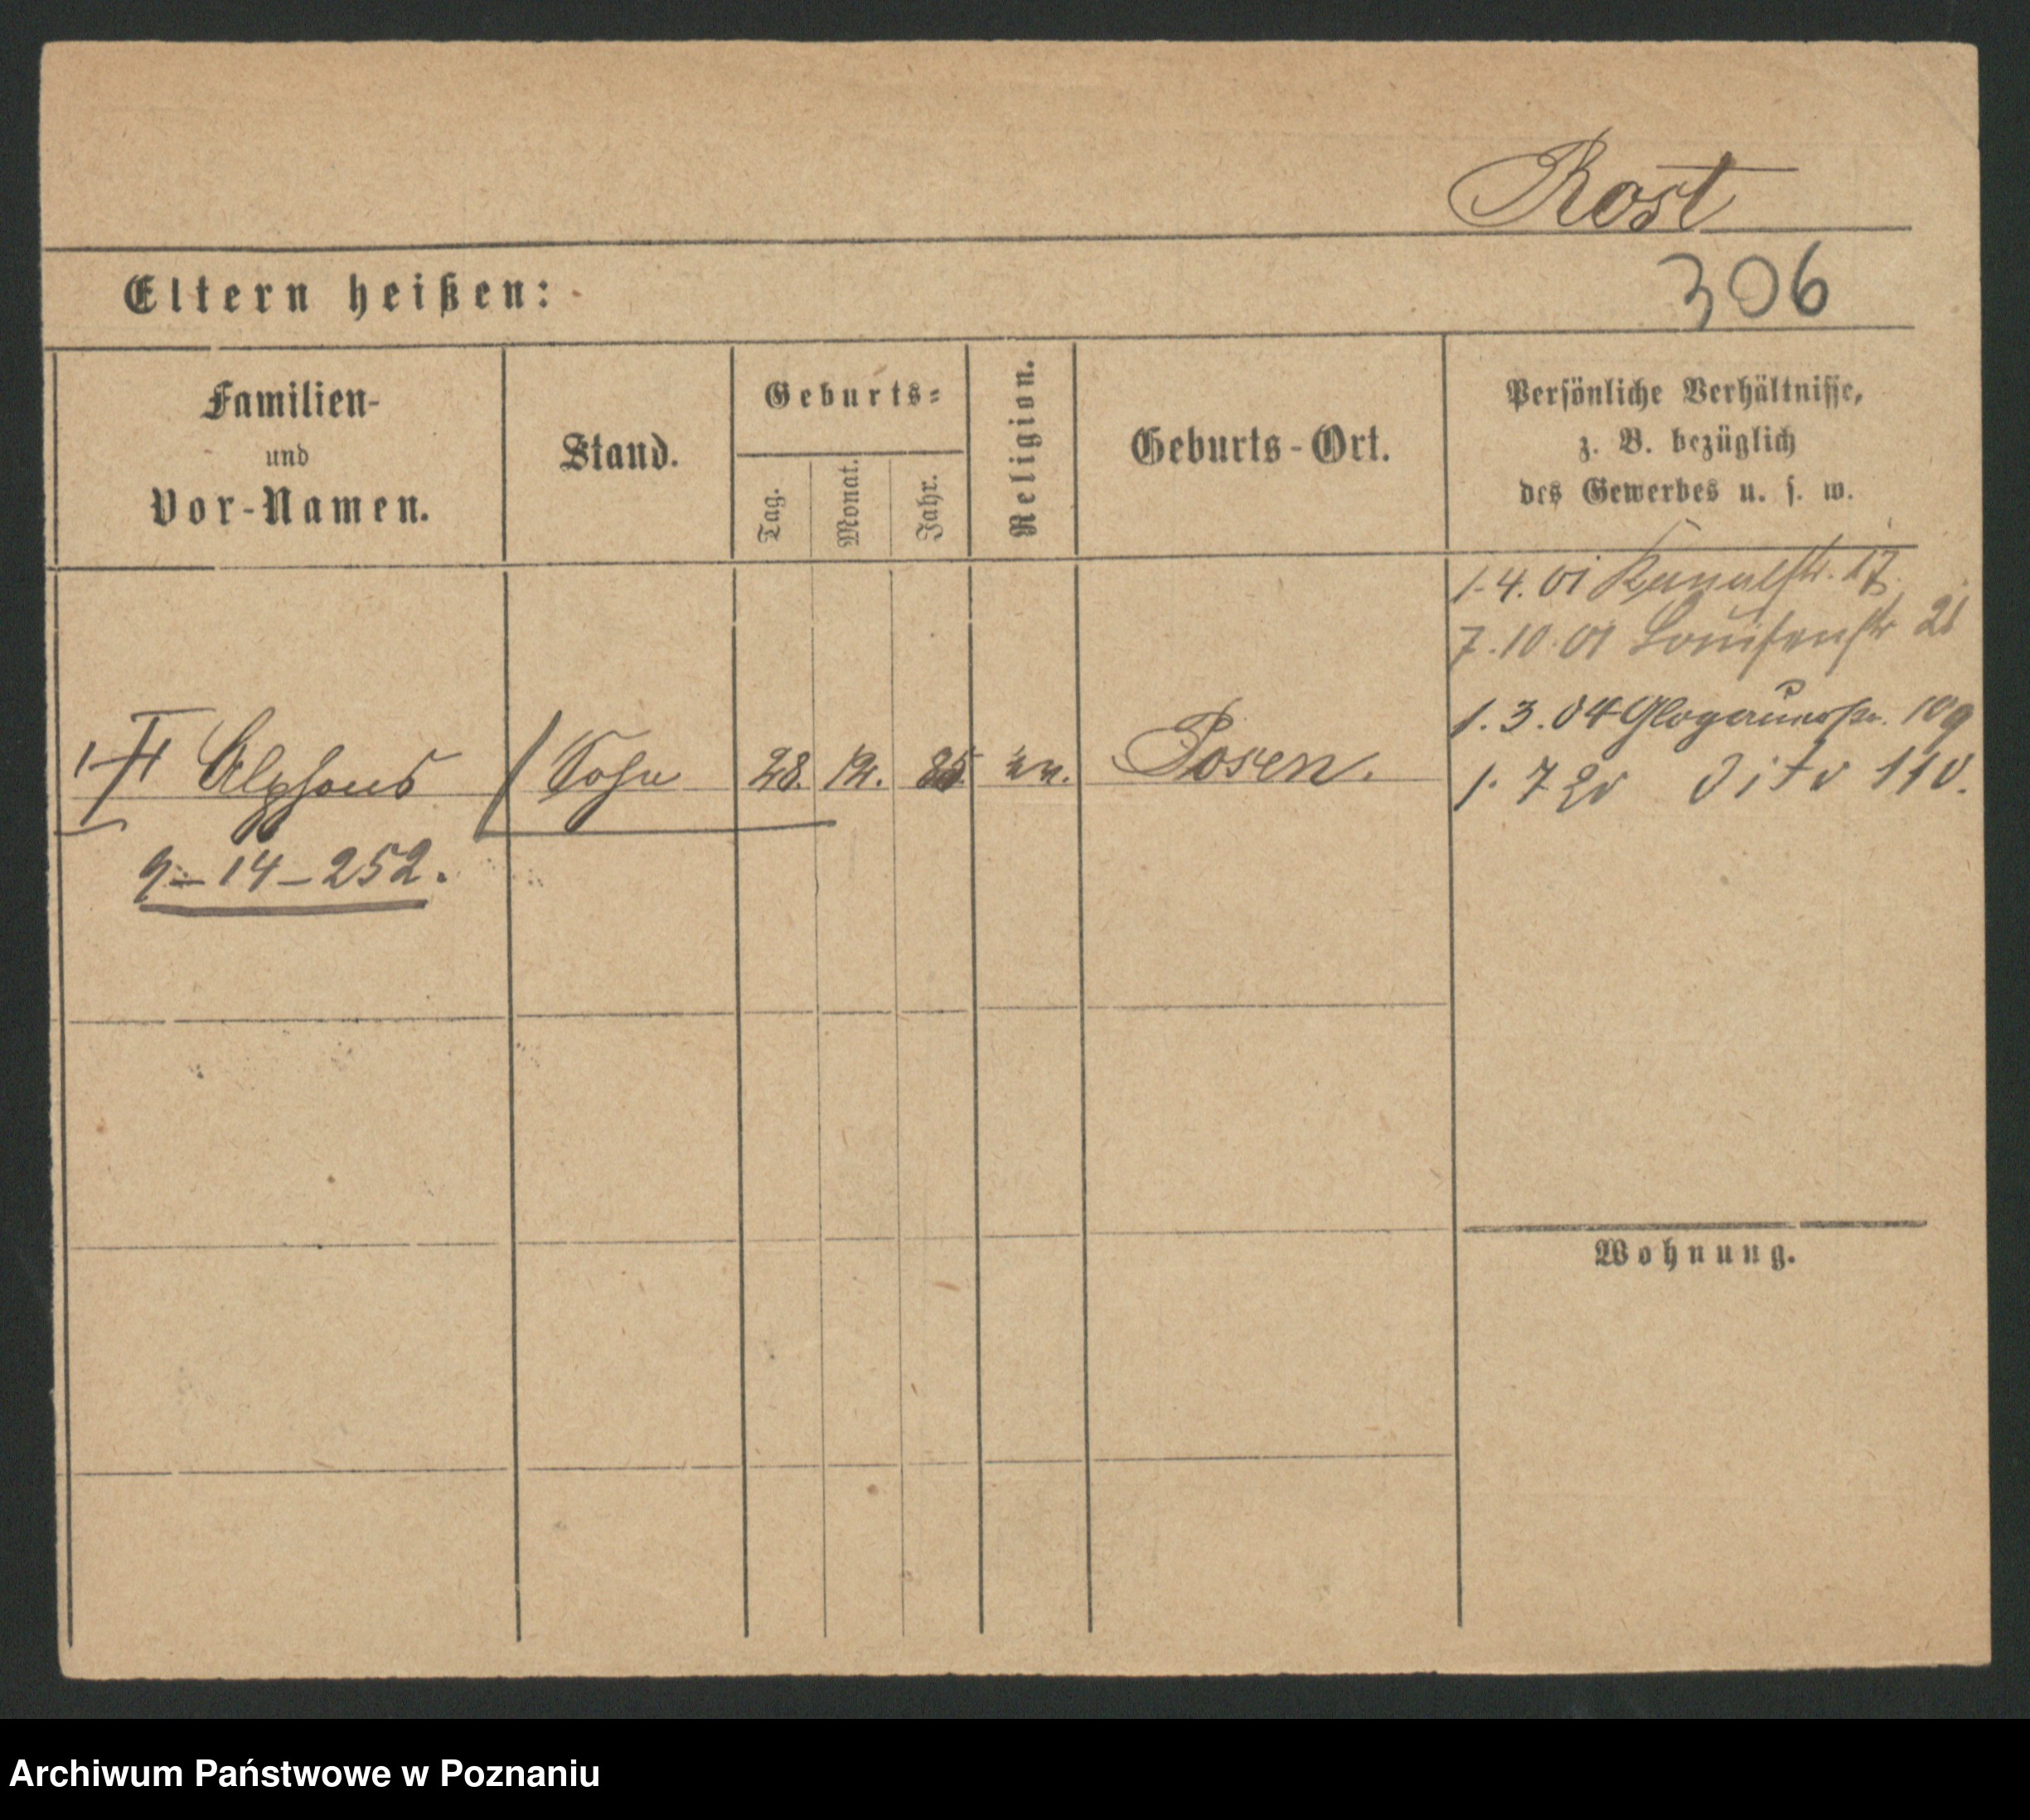 Rost
Eltern heißen:
306
Familien-
und
Vor-Namen.
Stand.
Geburts-
Tag.
Monat.
Jahr.
Religion.
Geburts-Ort.
Persönliche Verhältnisse,
z. B. bezüglich
des Gewerbes u. s. w.
1.4.01 Kanalstr. 17.
7.10.01 Louisenstr 21
1.3.04 Glogauerstr. 109
1.7 20 dito 110.
II Alphons Sohn 28. 12. 85. ev. Posen.
9-14-252.
Wohnung.
Archiwum Państwowe w Poznaniu